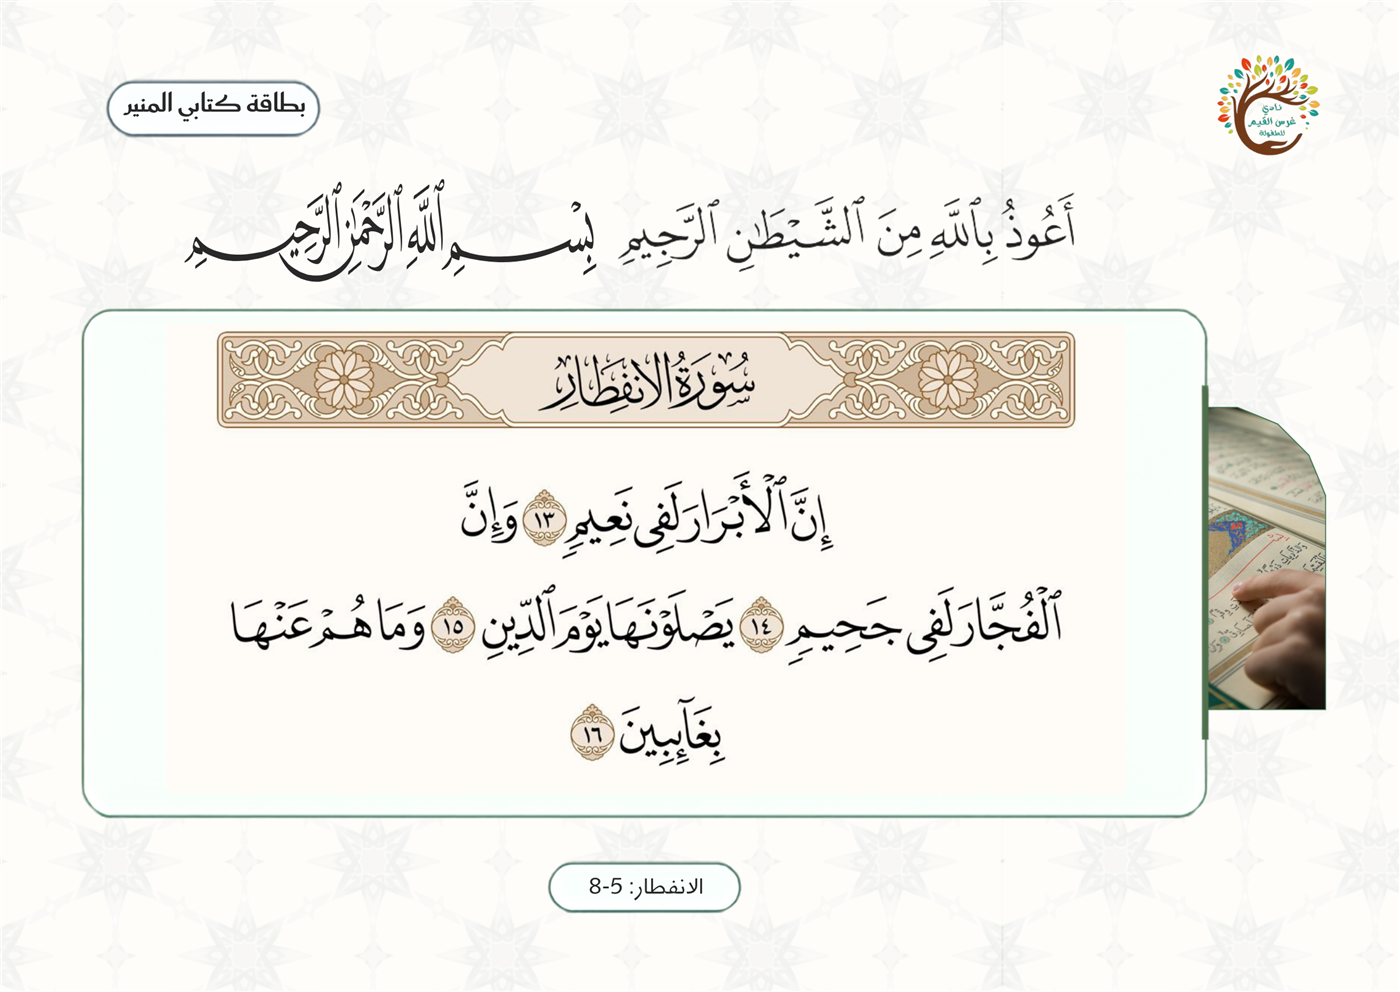 نادي
غرس القيم
للطفولة
بطاقة كتابي المنير
أَعُوذُ بِٱللَّهِ مِنَ ٱلشَّيْطَٰنِ ٱلرَّجِيمِ بِسْمِ ٱللَّهِ ٱلرَّحْمَٰنِ ٱلرَّحِيمِ
سُورَةُ الانفِطَارِ
إِنَّ ٱلْأَبْرَارَ لَفِى نَعِيمٍ ١٣ وَإِنَّ
ٱلْفُجَّارَ لَفِى جَحِيمٍ ١٤ يَصْلَوْنَهَا يَوْمَ ٱلدِّينِ ١٥ وَمَا هُمْ عَنْهَا
بِغَآئِبِينَ ١٦
الانفطار: 5-8